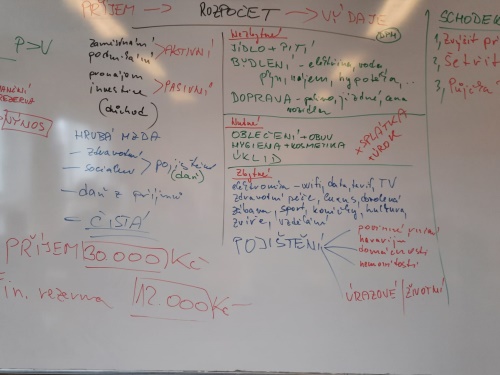 PŘÍJEM → ROZPOČET → VÝDAJE
P>V
REZERVA
VÝNOS
zaměstnání
podnikání
AKTIVNÍ
pronájem
investice
PASIVNÍ
(důchod)
HRUBÁ MZDA
- zdravotní
- sociální
pojištění
(daní)
- daň z příjmu
ČISTÁ
PŘÍJEM 30.000 Kč
fin. rezerva 12.000 Kč
Nezbytné
JÍDLO + PITÍ
BYDLENÍ - elektřina, voda
plyn, nájem, hypotéka, ...
DOPRAVA - palivo, jízdné, cena
vozidla
Nutné
OBLEČENÍ + OBUV
HYGIENA + KOSMETIKA
ÚKLID
× SPLÁTKA
+ ÚROK
Zbytné
elektronika - wifi, data, tarif, TV
zdravotní péče, luxus, dovolená
zábava, sport, koníčky, kultura,
zvíře, vzdělání
POJIŠTĚNÍ
povinné ručení
havarijní
domácnosti
nemovitosti
ÚRAZOVÉ | ŽIVOTNÍ
SCHODEK
1, Zvýšit
2, Šetřit
3, Půjčka